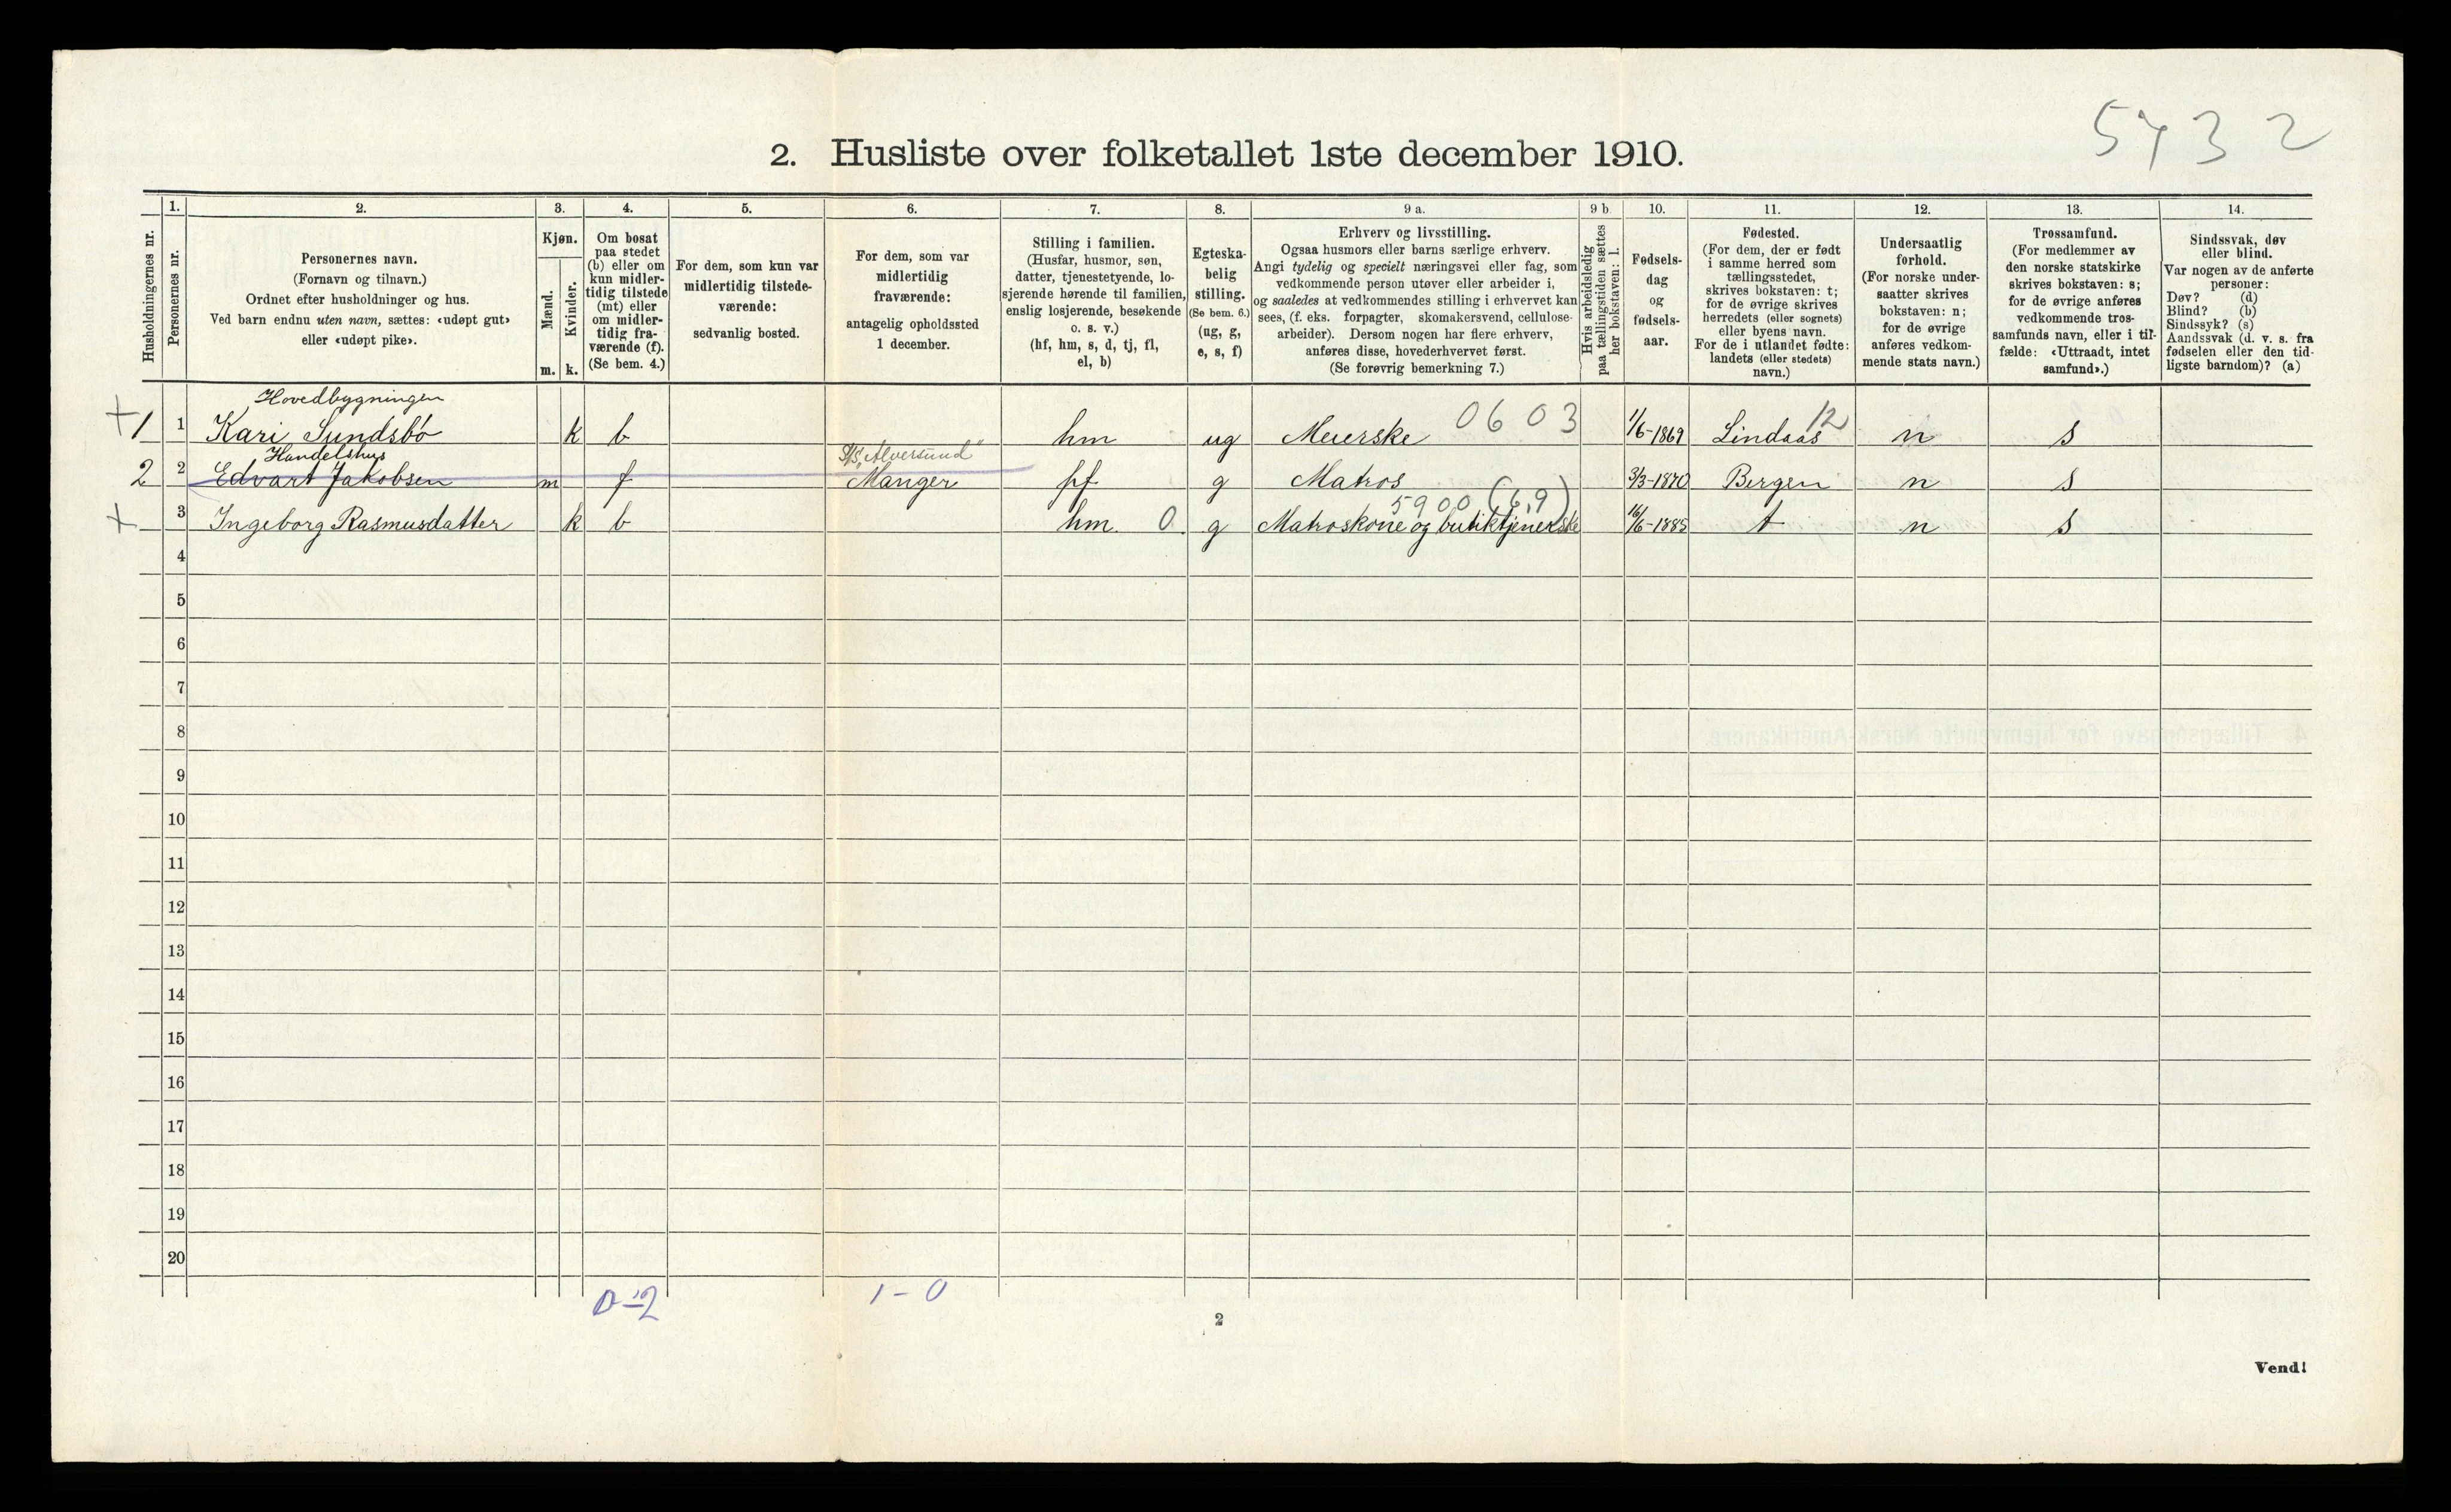 5432
2. Husliste over folketallet 1ste december 1910.
Husholdningernes nr.
1. Personernes nr.
2. Personernes navn.
(Fornavn og tilnavn.)
Ordnet efter husholdninger og hus.
Ved barn endnu uten navn, sættes: «udøpt gut»
eller «udøpt pike».
3. Kjøn.
Mænd. Kvinder.
m. k.
4. Om bosat
paa stedet
(b) eller om
kun midler-
tidig tilstede
(mt) eller
om midler-
tidig fra-
værende (f).
(Se bem. 4.)
5. For dem, som kun var
midlertidig tilstede-
værende:
sedvanlig bosted.
6. For dem, som var
midlertidig
fraværende:
antagelig opholdssted
1 december.
7. Stilling i familien.
(Husfar, husmor, søn,
datter, tjenestetyende, lo-
sjerende hørende til familien,
enslig losjerende, besøkende
o. s. v.)
(hf, hm, s, d, tj, fl,
el, b)
8. Egteska-
belig
stilling.
(Se bem. 6.)
(ug, g,
e, s, f)
9 a. Erhverv og livsstilling.
Ogsaa husmors eller barns særlige erhverv.
Angi tydelig og specielt næringsvei eller fag, som
vedkommende person utøver eller arbeider i,
og saaledes at vedkommendes stilling i erhvervet kan
sees, (f. eks. forpagter, skomakersvend, cellulose-
arbeider). Dersom nogen har flere erhverv,
anføres disse, hovederhvervet først.
(Se forøvrig bemerkning 7.)
9 b. Hvis arbeidsledig
paa tællingstiden sættes
her bokstaven: l.
10. Fødsels-
dag
og
fødsels-
aar.
11. Fødested.
(For dem, der er født
i samme herred som
tællingsstedet,
skrives bokstaven: t;
for de øvrige skrives
herredets (eller sognets)
eller byens navn.
For de i utlandet fødte:
landets (eller stedets)
navn.)
12. Undersaatlig
forhold.
(For norske under-
saatter skrives
bokstaven: n;
for de øvrige
anføres vedkom-
mende stats navn.)
13. Trossamfund.
(For medlemmer av
den norske statskirke
skrives bokstaven: s;
for de øvrige anføres
vedkommende tros-
samfunds navn, eller i til-
fælde: «Uttraadt, intet
samfund».)
14. Sindssvak, døv
eller blind.
Var nogen av de anførte
personer:
Døv? (d)
Blind? (b)
Sindssyk? (s)
Aandssvak (d. v. s. fra
fødselen eller den tid-
ligste barndom)? (a)
Hovedbygningen
+ 1 1 Kari Sundsbö k b hm ug Meierske 0603 1/6-1869 Lindaas 12 n s
Handelshus S/S „Alversund"
2 2 Edvart Jakobsen m f Manger hf g Matros 3/3-1870 Bergen n s
5900 (6,9)
+ 3 Ingeborg Rasmusdatter k b hm 0 g Matroskone og butiktjenerske 16/6-1885 t n s
4
5
6
7
8
9
10
11
12
13
14
15
16
17
18
19
20
0-2 1-0
2
Vend!